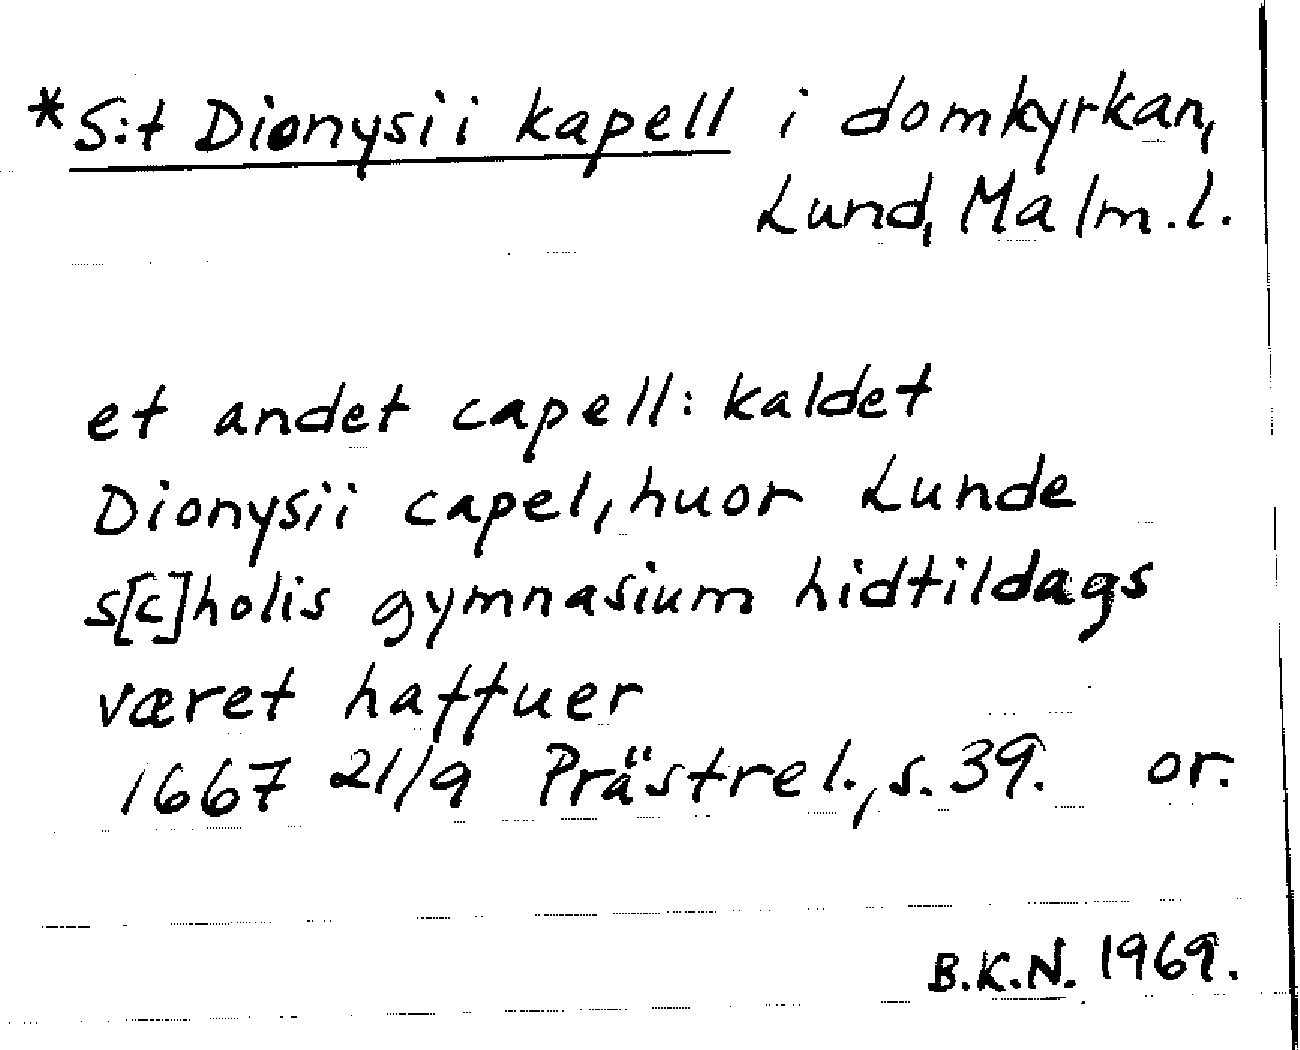 *S:t Dionysii kapell i domkyrkan,
Lund, Malm.l.
et andet capell: kaldet
Dionysii capel, huor Lunde
s[c]holis gymnasium hidtildags
været haffuer
1667 21/9 Prästrel., s. 39. or.
B.K.N. 1969.